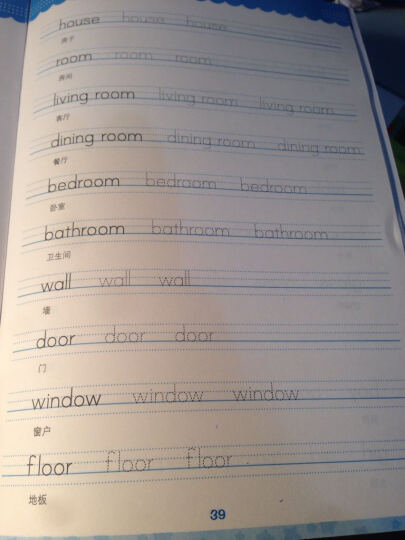 house house house
房子
room room room
房间
living room living room living room
客厅
dining room dining room dining room
餐厅
bedroom bedroom bedroom
卧室
bathroom bathroom bathroom
卫生间
wall wall wall
墙
door door door
门
window window window
窗户
floor floor floor
地板
39